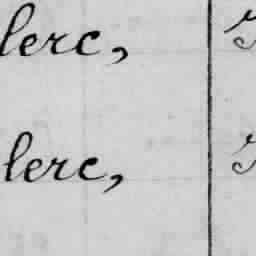 lerc,
lerc,